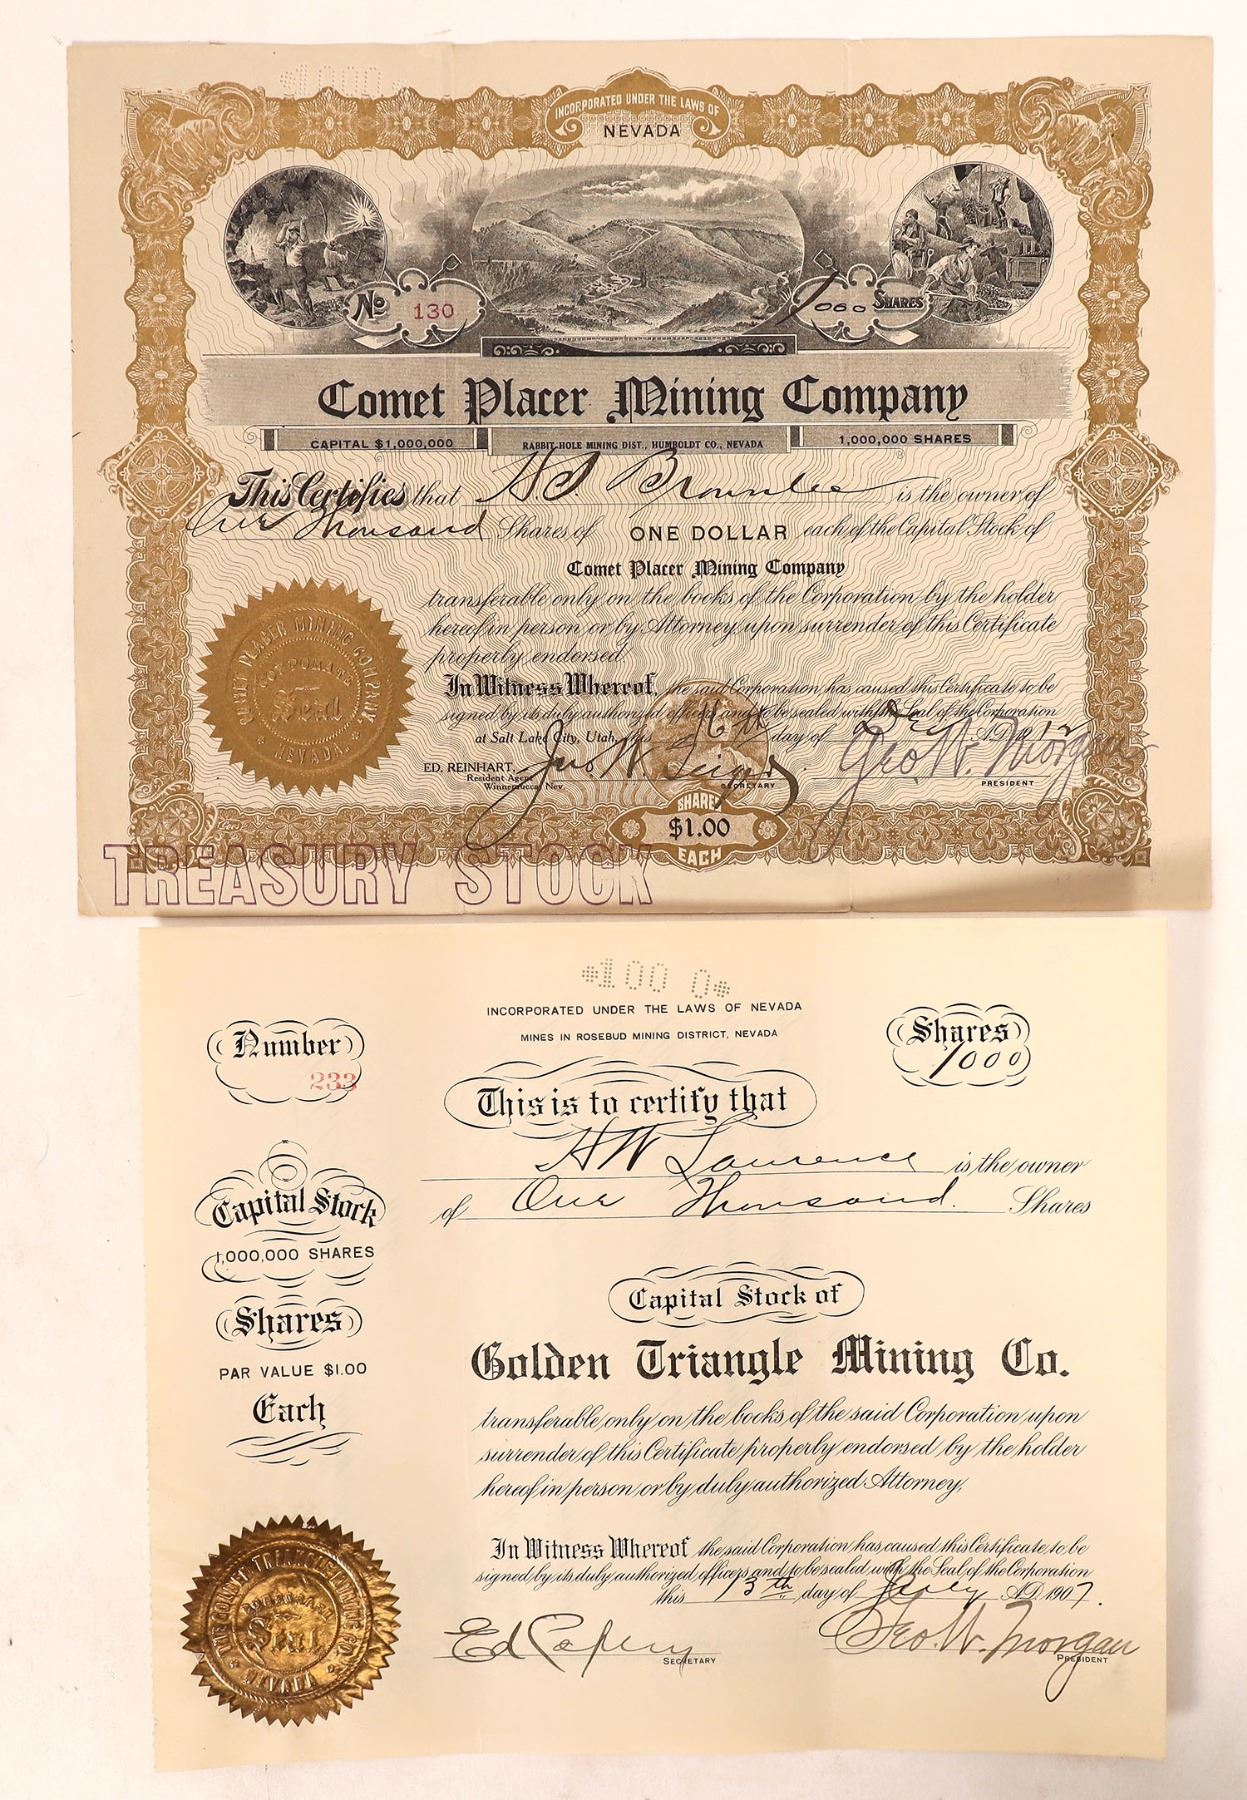 *1000*
INCORPORATED UNDER THE LAWS OF
NEVADA
No 130
1000 SHARES
Comet Placer Mining Company
CAPITAL $1,000,000
RABBIT-HOLE MINING DIST., HUMBOLDT CO., NEVADA
1,000,000 SHARES
This Certifies that H.S. Brownlee is the owner of
One Thousand Shares of ONE DOLLAR each of the Capital Stock of
Comet Placer Mining Company
transferable only on the books of the Corporation by the holder
hereof in person or by Attorney upon surrender of this Certificate
properly endorsed.
In Witness Whereof, the said Corporation has caused this Certificate to be
signed by its duly authorized officers and to be sealed with the Seal of the Corporation
at Salt Lake City, Utah, this 16th day of Dec A.D. 1912
ED. REINHART,
Resident Agent
Winnemucca, Nev
Jno W.
SECRETARY
Geo. W. Morgan
PRESIDENT
COMET PLACER MINING COMPANY.
CORPORATE
Seal
NEVADA
SHARES
$1.00
EACH
TREASURY STOCK
*1000*
INCORPORATED UNDER THE LAWS OF NEVADA
MINES IN ROSEBUD MINING DISTRICT, NEVADA
Number
233
Shares
1000
This is to certify that
H W Laurence is the owner
of One Thousand. Shares
Capital Stock
1,000,000 SHARES
Shares
PAR VALUE $1.00
Each
Capital Stock of
Golden Triangle Mining Co.
transferable only on the books of the said Corporation upon
surrender of this Certificate properly endorsed by the holder
hereof in person or by duly authorized Attorney.
In Witness Whereof the said Corporation has caused this Certificate to be
signed by its duly authorized officers and to be sealed with the Seal of the Corporation
this 13th day of July A.D. 1907.
Ed
SECRETARY
Geo. W. Morgan
PRESIDENT
THE GOLDEN TRIANGLE MINING CO.
CORPORATE
Seal
NEVADA